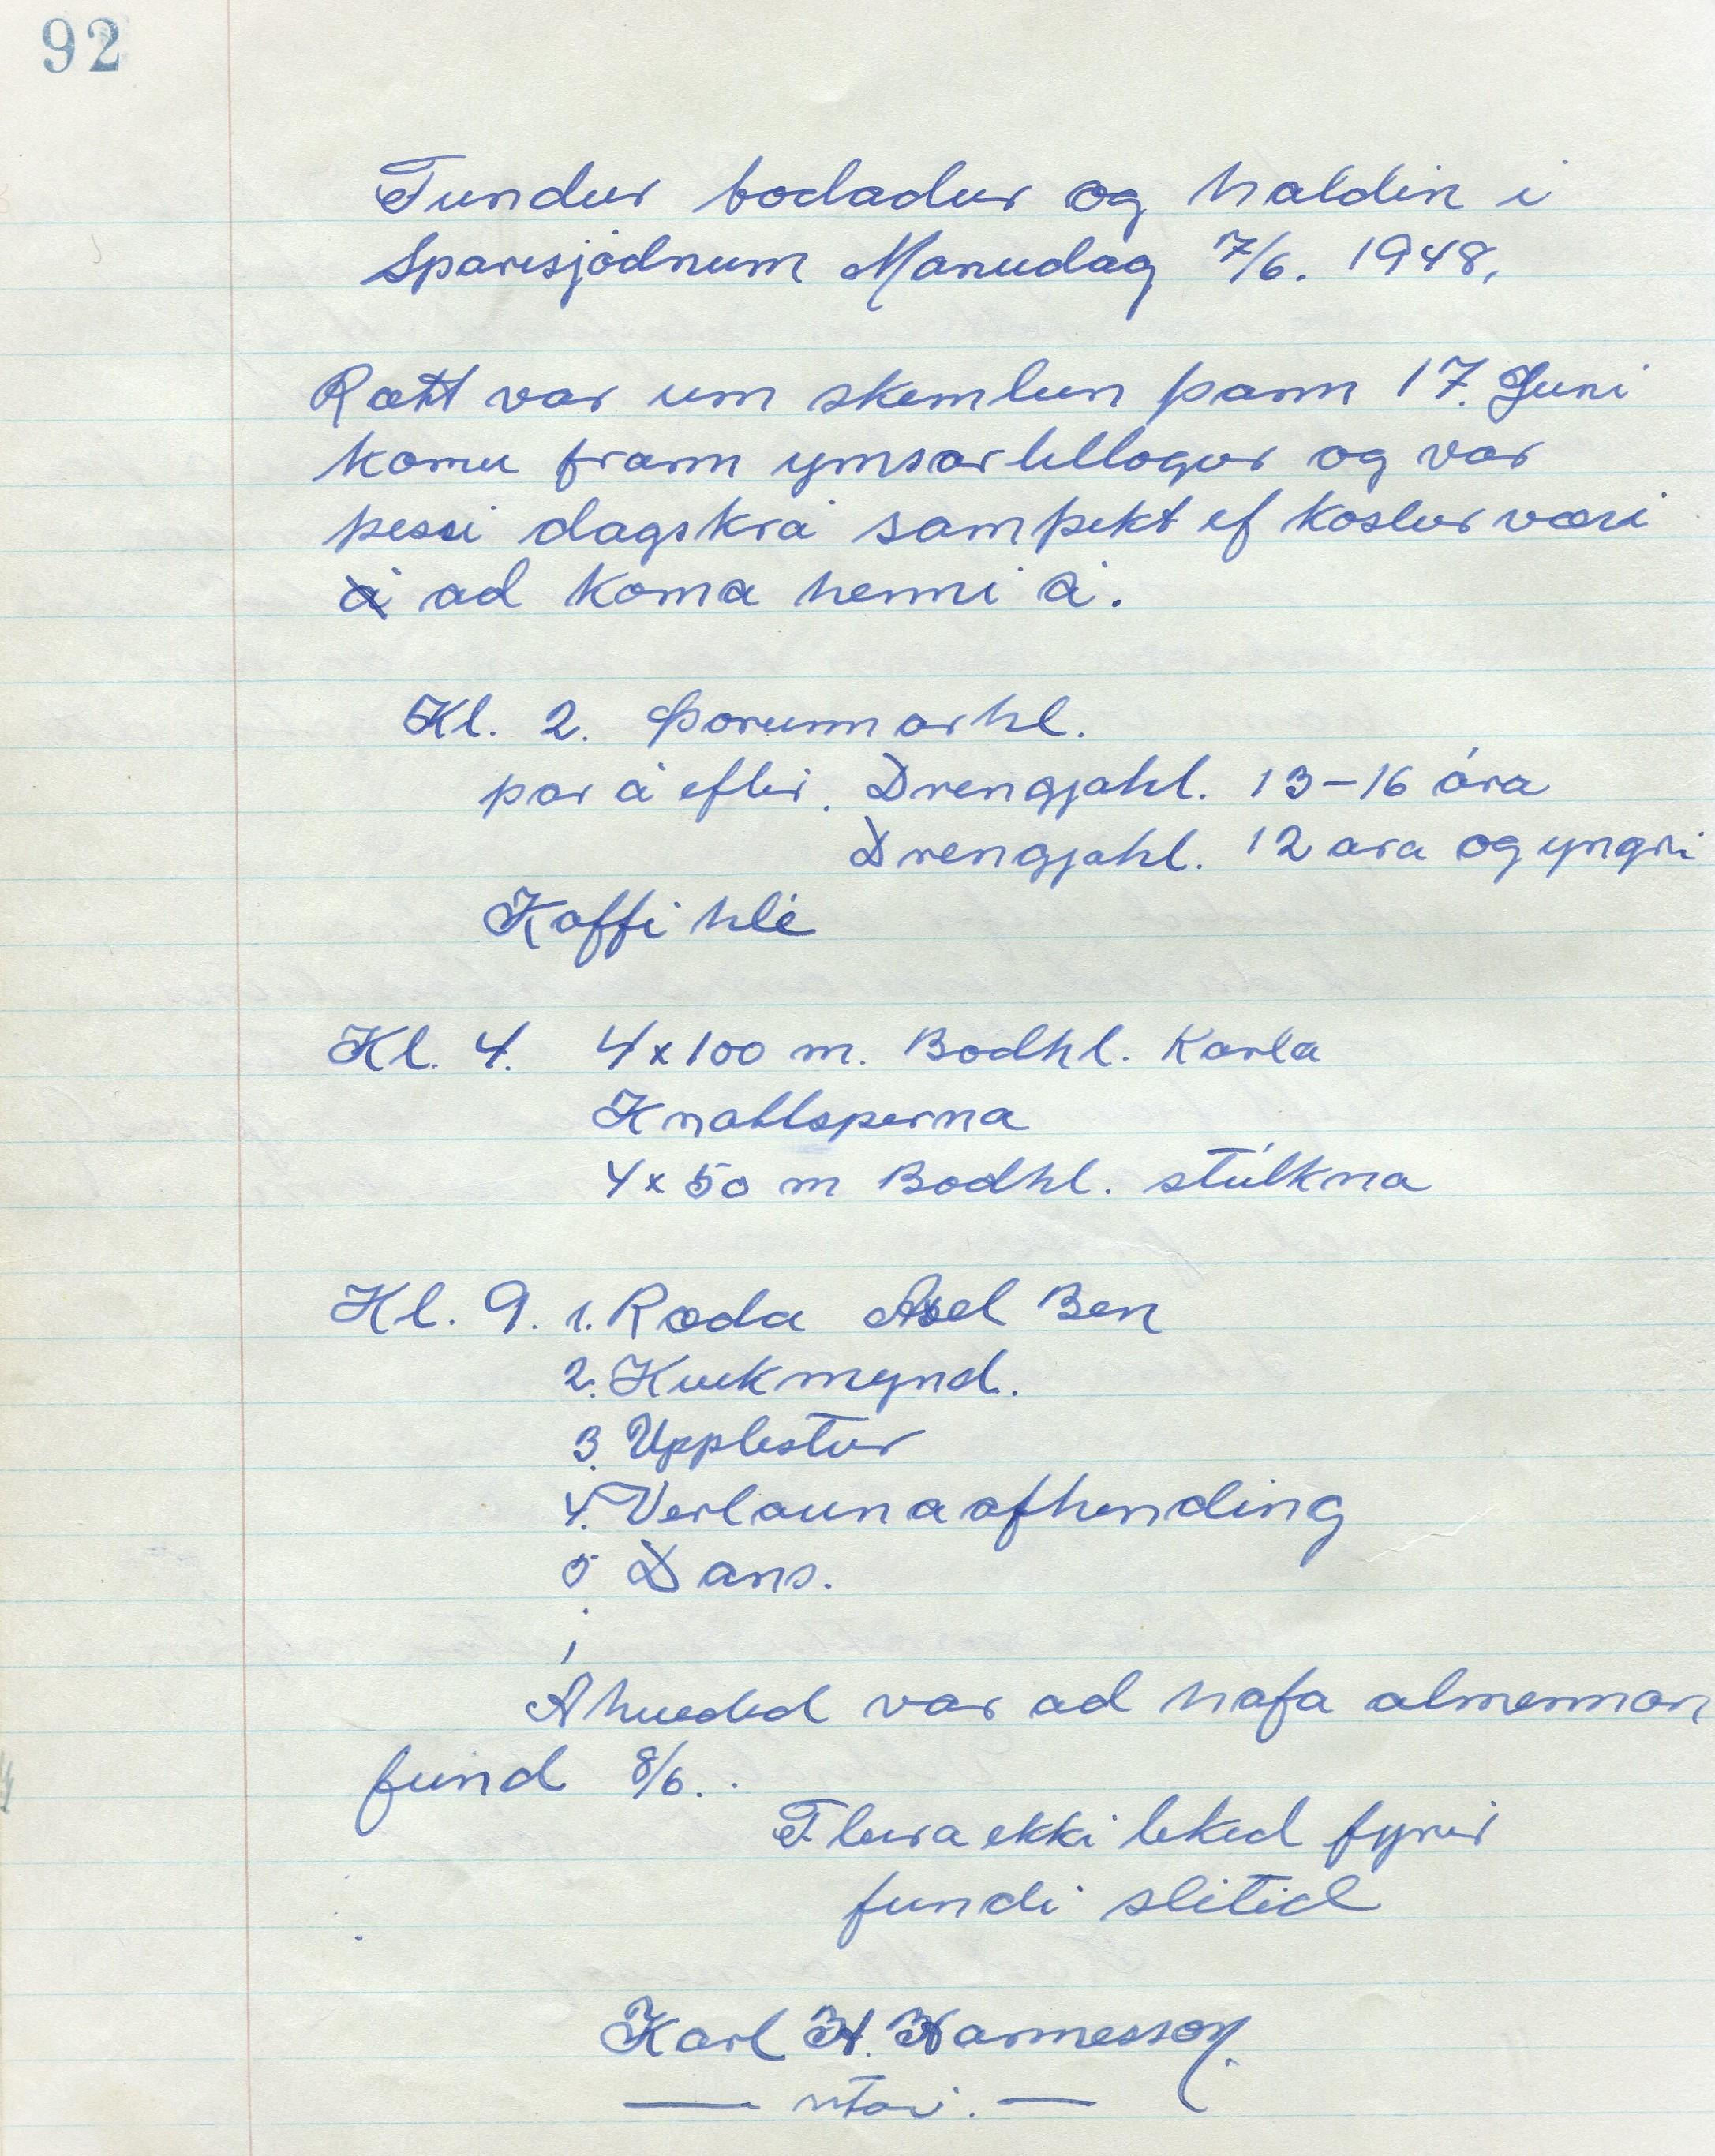 92
Fundur bodadur og haldin i
Sparisjódnum Manudag 7/6. 1948.
Rætt var um skemlun þann 17. Juni
komu fram ymsar lillogur og var
þessi dagskrá samþekt ef koslur væri
ad koma henni á.
Kl. 2. Þorunnarhl.
þar á eftir. Drengjahl. 13-16 ára
Drengjahl. 12 ara og yngri
Kaffi hlé
Kl. 4. 4x100 m. Bodhl. Karla
Knattsperna
4x50 m Bodhl. stúlkna
Kl. 9. 1. Ræda Axel Ben
2. Kvikmynd.
3. Upplestur
4. Verlaunaafhending
5 Dans.
Ahvedid var ad hafa almennan
fund 8/6.
Fleira ekki lekid fyrir
fundi slitid
Karl H. Hannesson.
ritari.